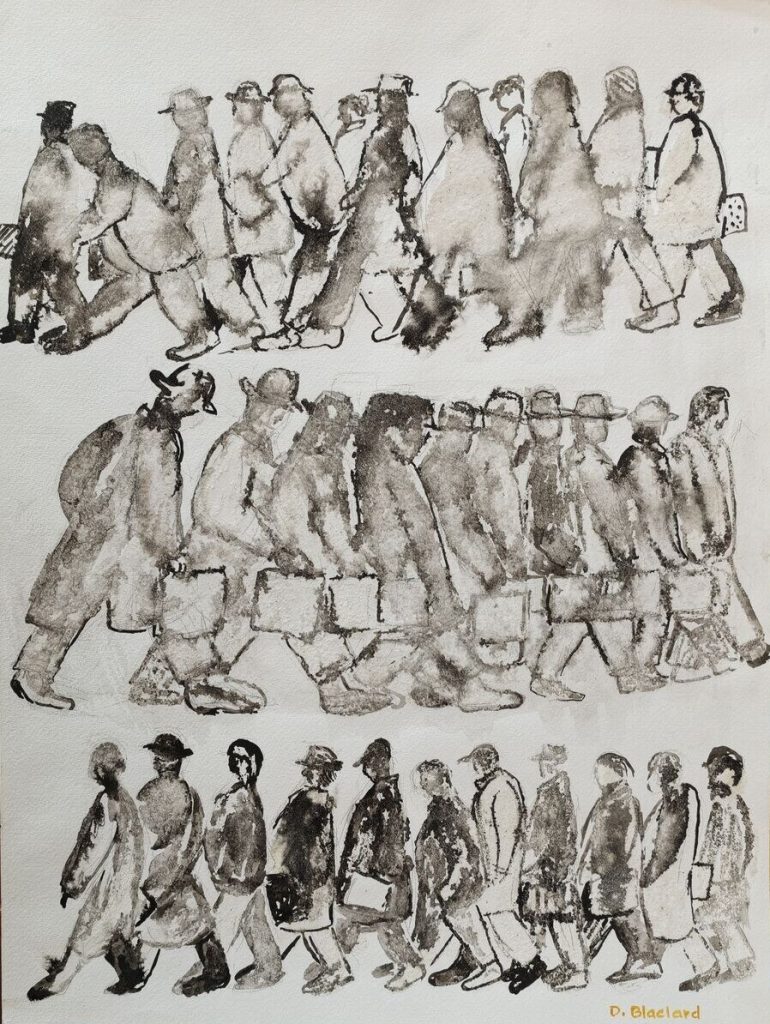 D. Blaclard